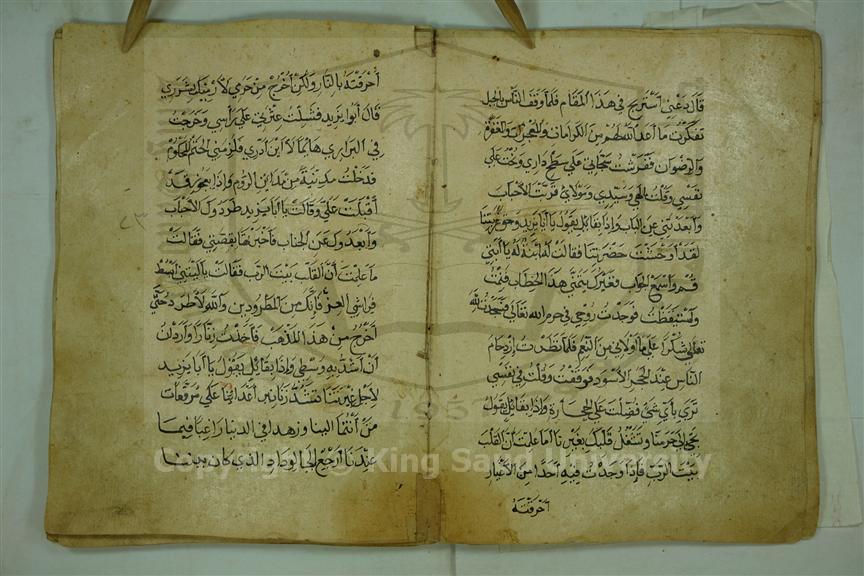 قال دعني أستريح في هذا المقام فلما وقف الناس بالجبل
تفكرت ما أعد الله لهم من الكرامات والمغفرة
والرضوان ففرشت سجاني على سطح داري ونحت على
نفسي وقلت إلهي وسيدي ومولاي قربت الأحباب
وأبعدتني عن الباب وإذا بقائل يقول يا أبا يزيد وحق
لقد أوحشت حضرتنا فقالت له يا أبتي
قم واسمع الجواب فغيرك يتمنى هذا الخطاب فقمت
واستيقظت فوجدت روحي في حرم الله تعالى فسجدت لله
تعالى شكرا على ما أولاني من النعم فلما نظرت إزدحام
الناس عند الحجر الأسود فوقفت وقلت في نفسي
ترى بأي شيء فضلت على الحجارة وإذا بقائل يقول
حرمنا وتشغل قلبك بغيرنا أما علمت أن القلب
بيت الرب فإذا وجدت فيه أحدا من الأغيار
أحرقته
أحرقته بالنار ولكن أخرج من حرمي لأرمينك بشرري
قال أبوا يزيد فشلت على رأسي وخرجت
في البراري هائما لا أين أدري فلزمني الحتم المحكوم
فدخلت مدينة من مداين الروم وإذا بعجوز قد
أقبلت علي وقالت يا أبا يزيد طردوك الأحباب
وأبعدوك عن الجناب فأخبرتها بقصتي فقالت
ما علمت أن القلب بيت الرب فقلت يا ابسط
فراشي العز فإنك من المطرودين والله لأطرد حتى
أخرج من هذا المذهب فأخذت زنارا وأردت
أن أشد به وسطي وإذا بقائل يقول يا أبا يزيد
لأجل غيرتنا تشد زنانير أعدائنا على مرقعات
من أتقا الينا وزهد في الدنيا راغبا فيما
عندنا أرجع إلى الوداد الذي كان بيننا
٤٣
Copyright © King Saud University
1957